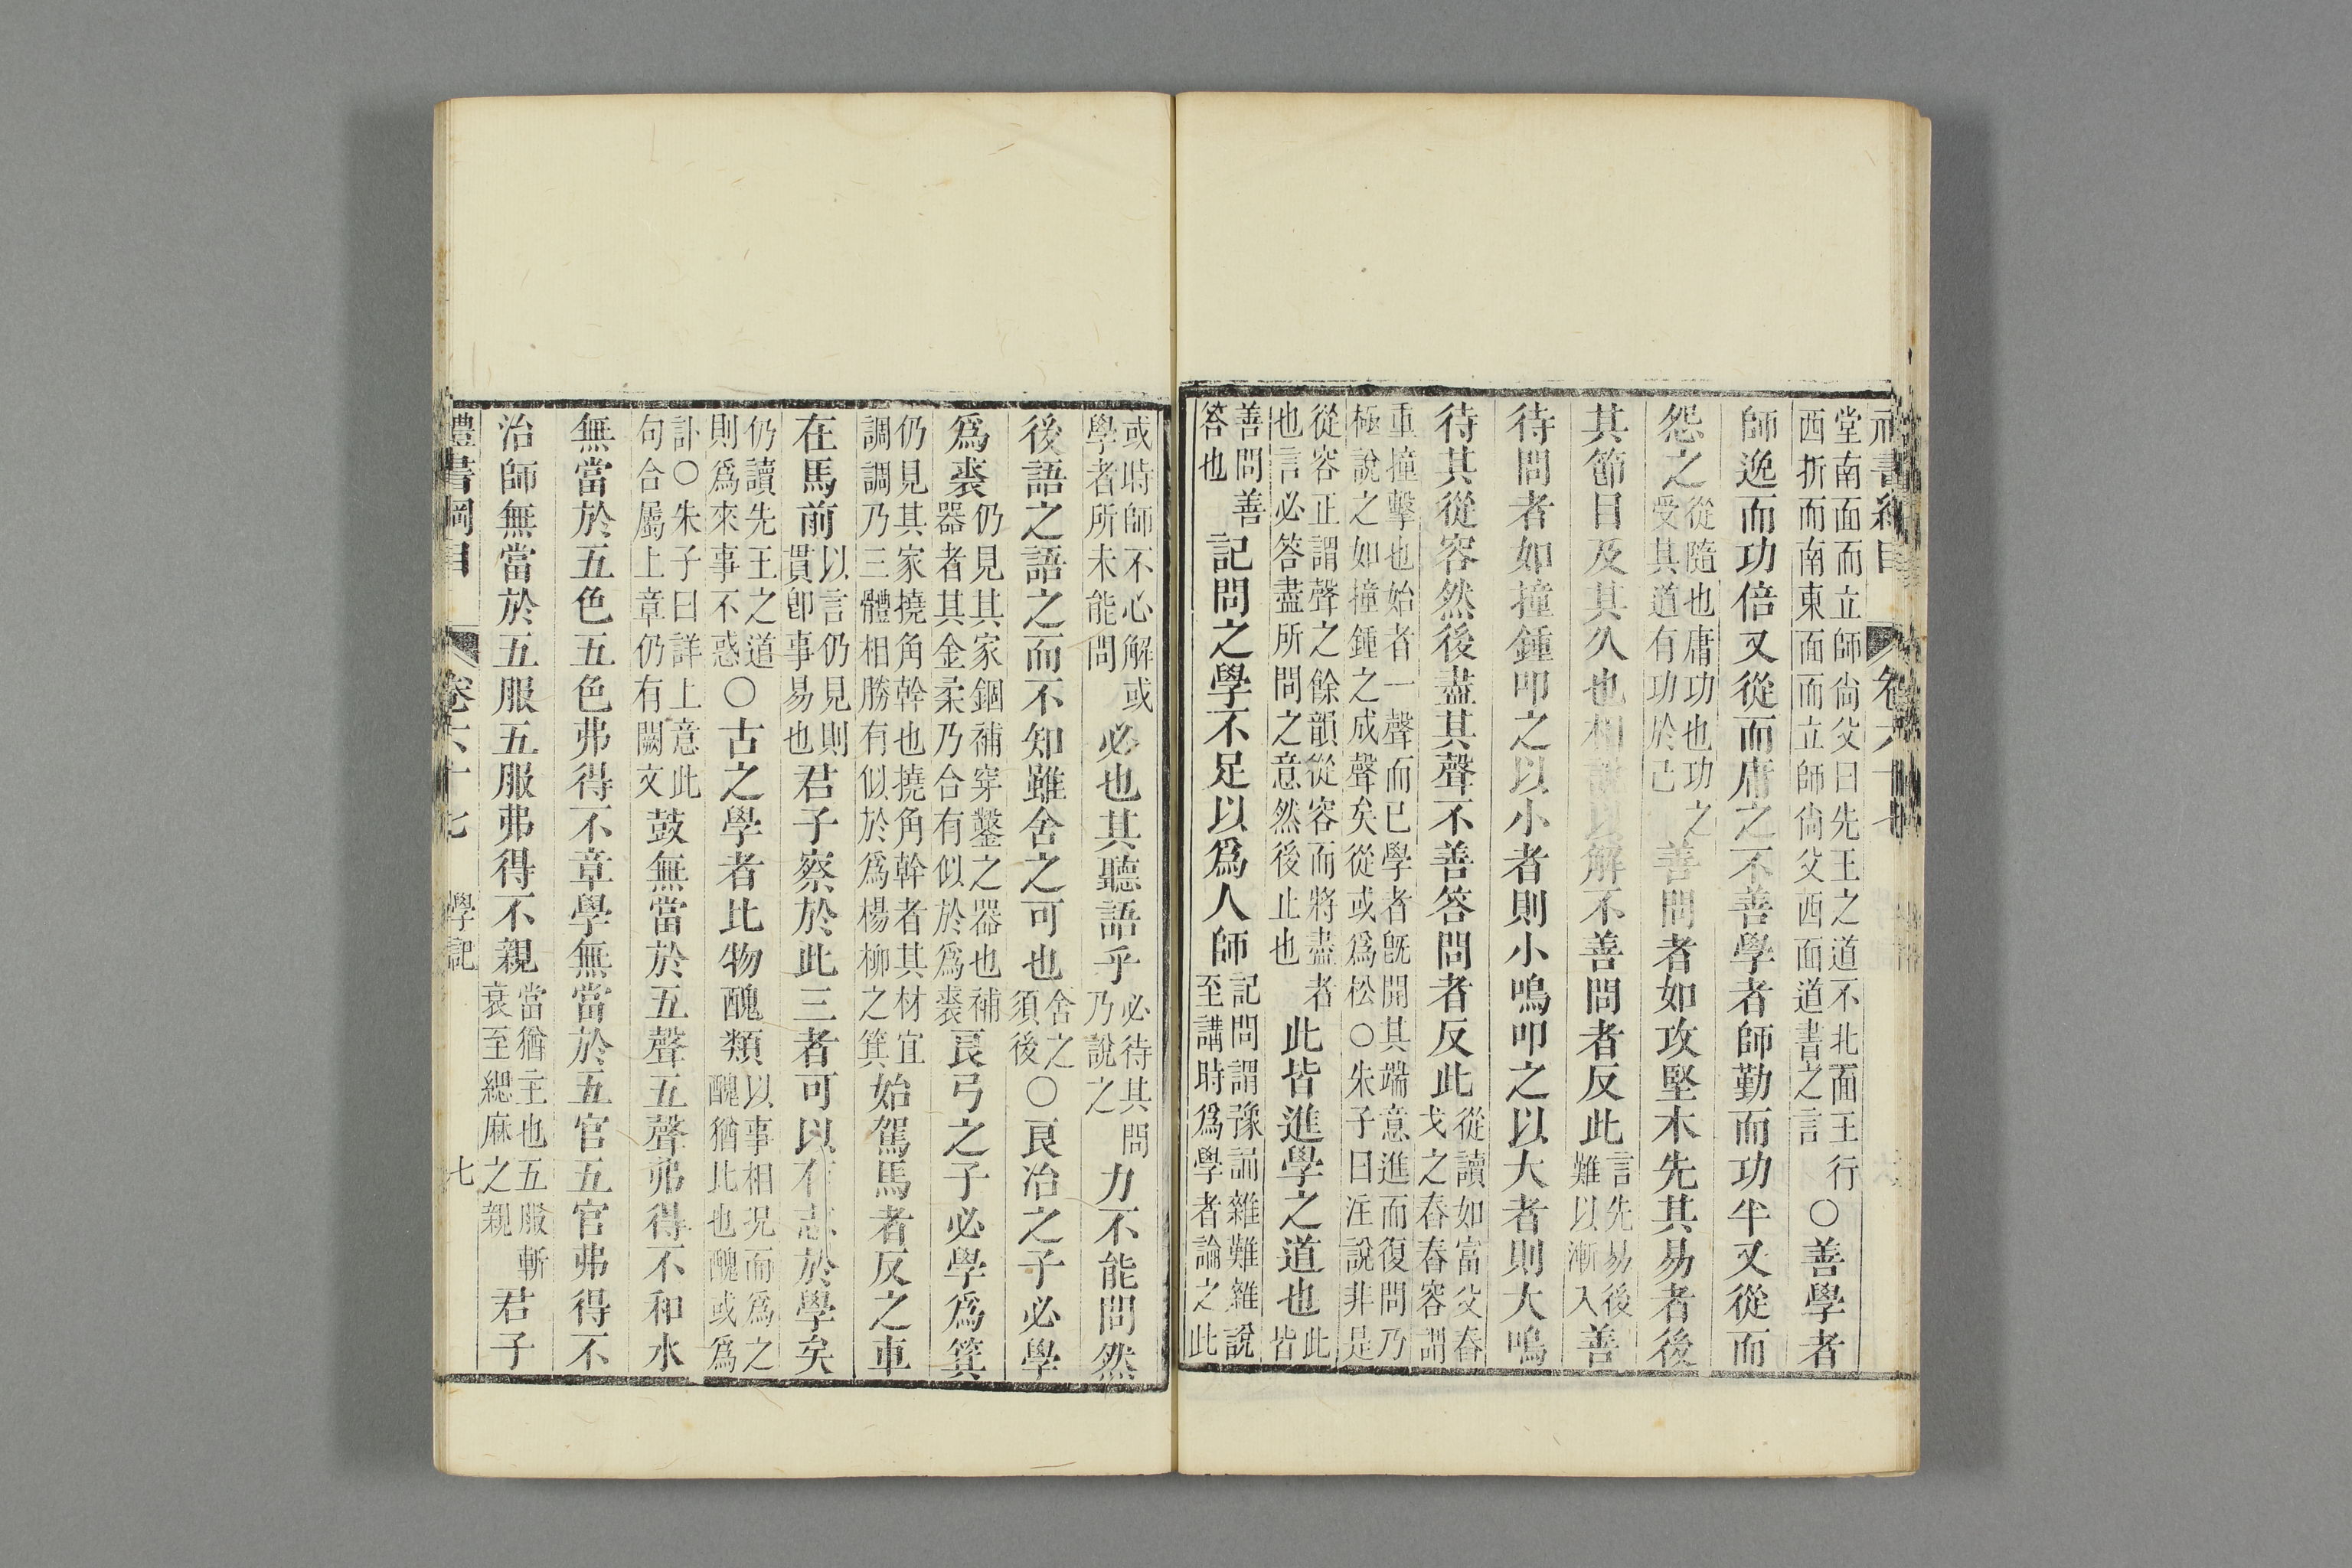 堂南面而立師尙父曰先王之道不北面王行西折而南東面而立師尙父西面道書之言○善學者
師逸而功倍又從而庸之不善學者師勤而功半又從而
怨之從隨也庸功也功之受其道有功於己善問者如攻堅木先其易者後
其節目及其久也相說以解不善問者反此言先易後難以漸入善
待問者如撞鍾叩之以小者則小鳴叩之以大者則大鳴
待其從容然後盡其聲不善答問者反此從讀如富父舂戈之舂舂容謂
重撞擊也始者一聲而已學者旣開其端意進而復問乃極說之如撞鍾之成聲矣從或爲松○朱子曰注說非是
從容正謂聲之餘韻從容而將盡者也言必答盡所問之意然後止也此皆進學之道也此皆
善問善答也記問之學不足以爲人師記問謂豫誦雜難雜說至講時爲學者論之此
或時師不心解或學者所未能問必也其聽語乎必待其問乃說之力不能問然
後語之語之而不知雖舍之可也舍之須後○良冶之子必學
爲裘仍見其家錮補穿鑿之器也補器者其金柔乃合有似於爲裘良弓之子必學爲箕
仍見其家撓角幹也撓角幹者其材宜調調乃三體相勝有似於爲楊柳之箕始駕馬者反之車
在馬前以言仍見則貫卽事易也君子察於此三者可以有志於學矣
仍讀先王之道則爲來事不惑○古之學者比物醜類以事相況而爲之醜猶比也醜或爲
訃○朱子曰詳上意此句合屬上章仍有闕文鼓無當於五聲五聲弗得不和水
無當於五色五色弗得不章學無當於五官五官弗得不
治師無當於五服五服弗得不親當猶主也五服斬衰至緦麻之親君子
禮書綱目 卷六十七 學記 七